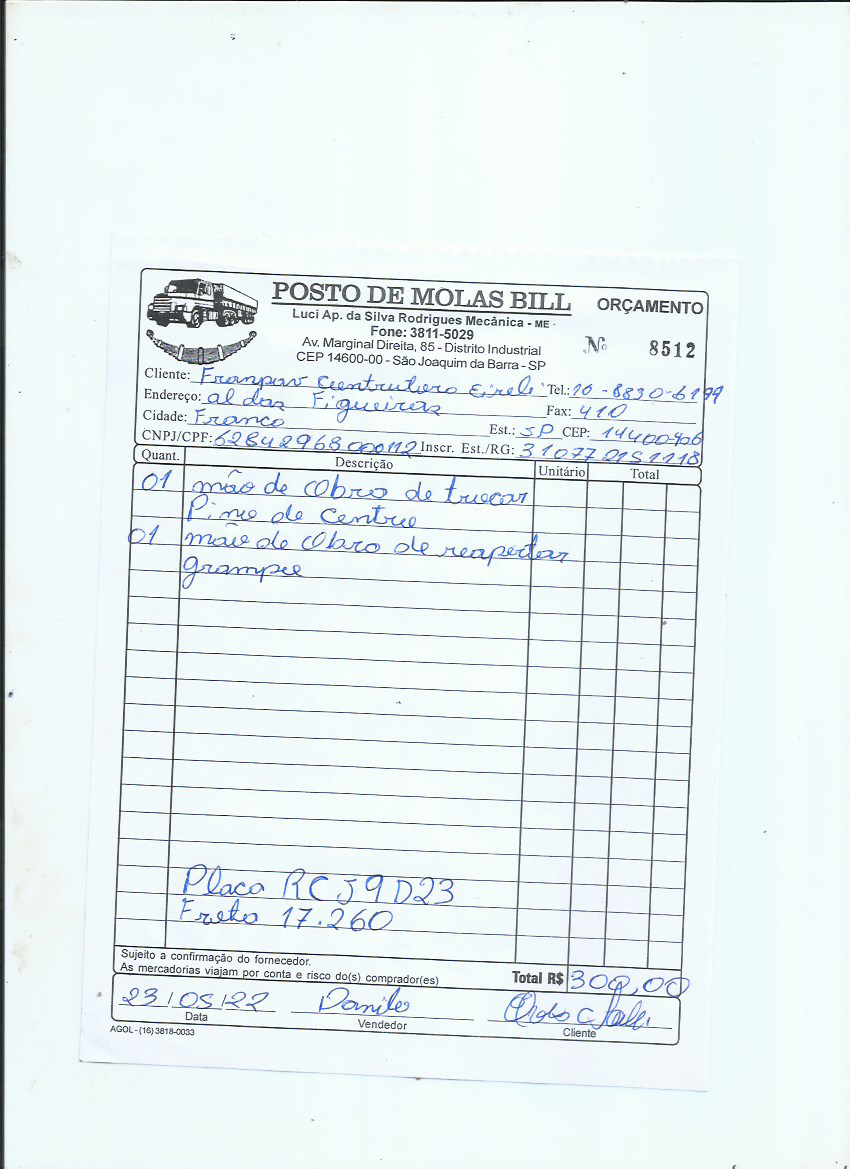 POSTO DE MOLAS BILL ORÇAMENTO
Luci Ap. da Silva Rodrigues Mecânica - ME -
Fone: 3811-5029
Nº 8512
Av. Marginal Direita, 85 - Distrito Industrial
CEP 14600-00 - São Joaquim da Barra - SP
Cliente: Franpav Eireli Tel.:
Endereço: al das Figueiras Fax: 410
Cidade: Franca Est.: SP CEP:
CNPJ/CPF: 62842968000112 Inscr. Est./RG:
Quant. Descrição Unitário Total
01 mão de Obra de trocar
Pino de Centro
01 mão de Obra de reapertar
grampo
Placa RCJ9D23
Freta 17.260
Sujeito a confirmação do fornecedor.
As mercadorias viajam por conta e risco do(s) comprador(es) Total R$ 300,00
23/05/22 Danilo
Data Vendedor Cliente
AGOL - (16) 3818-0033